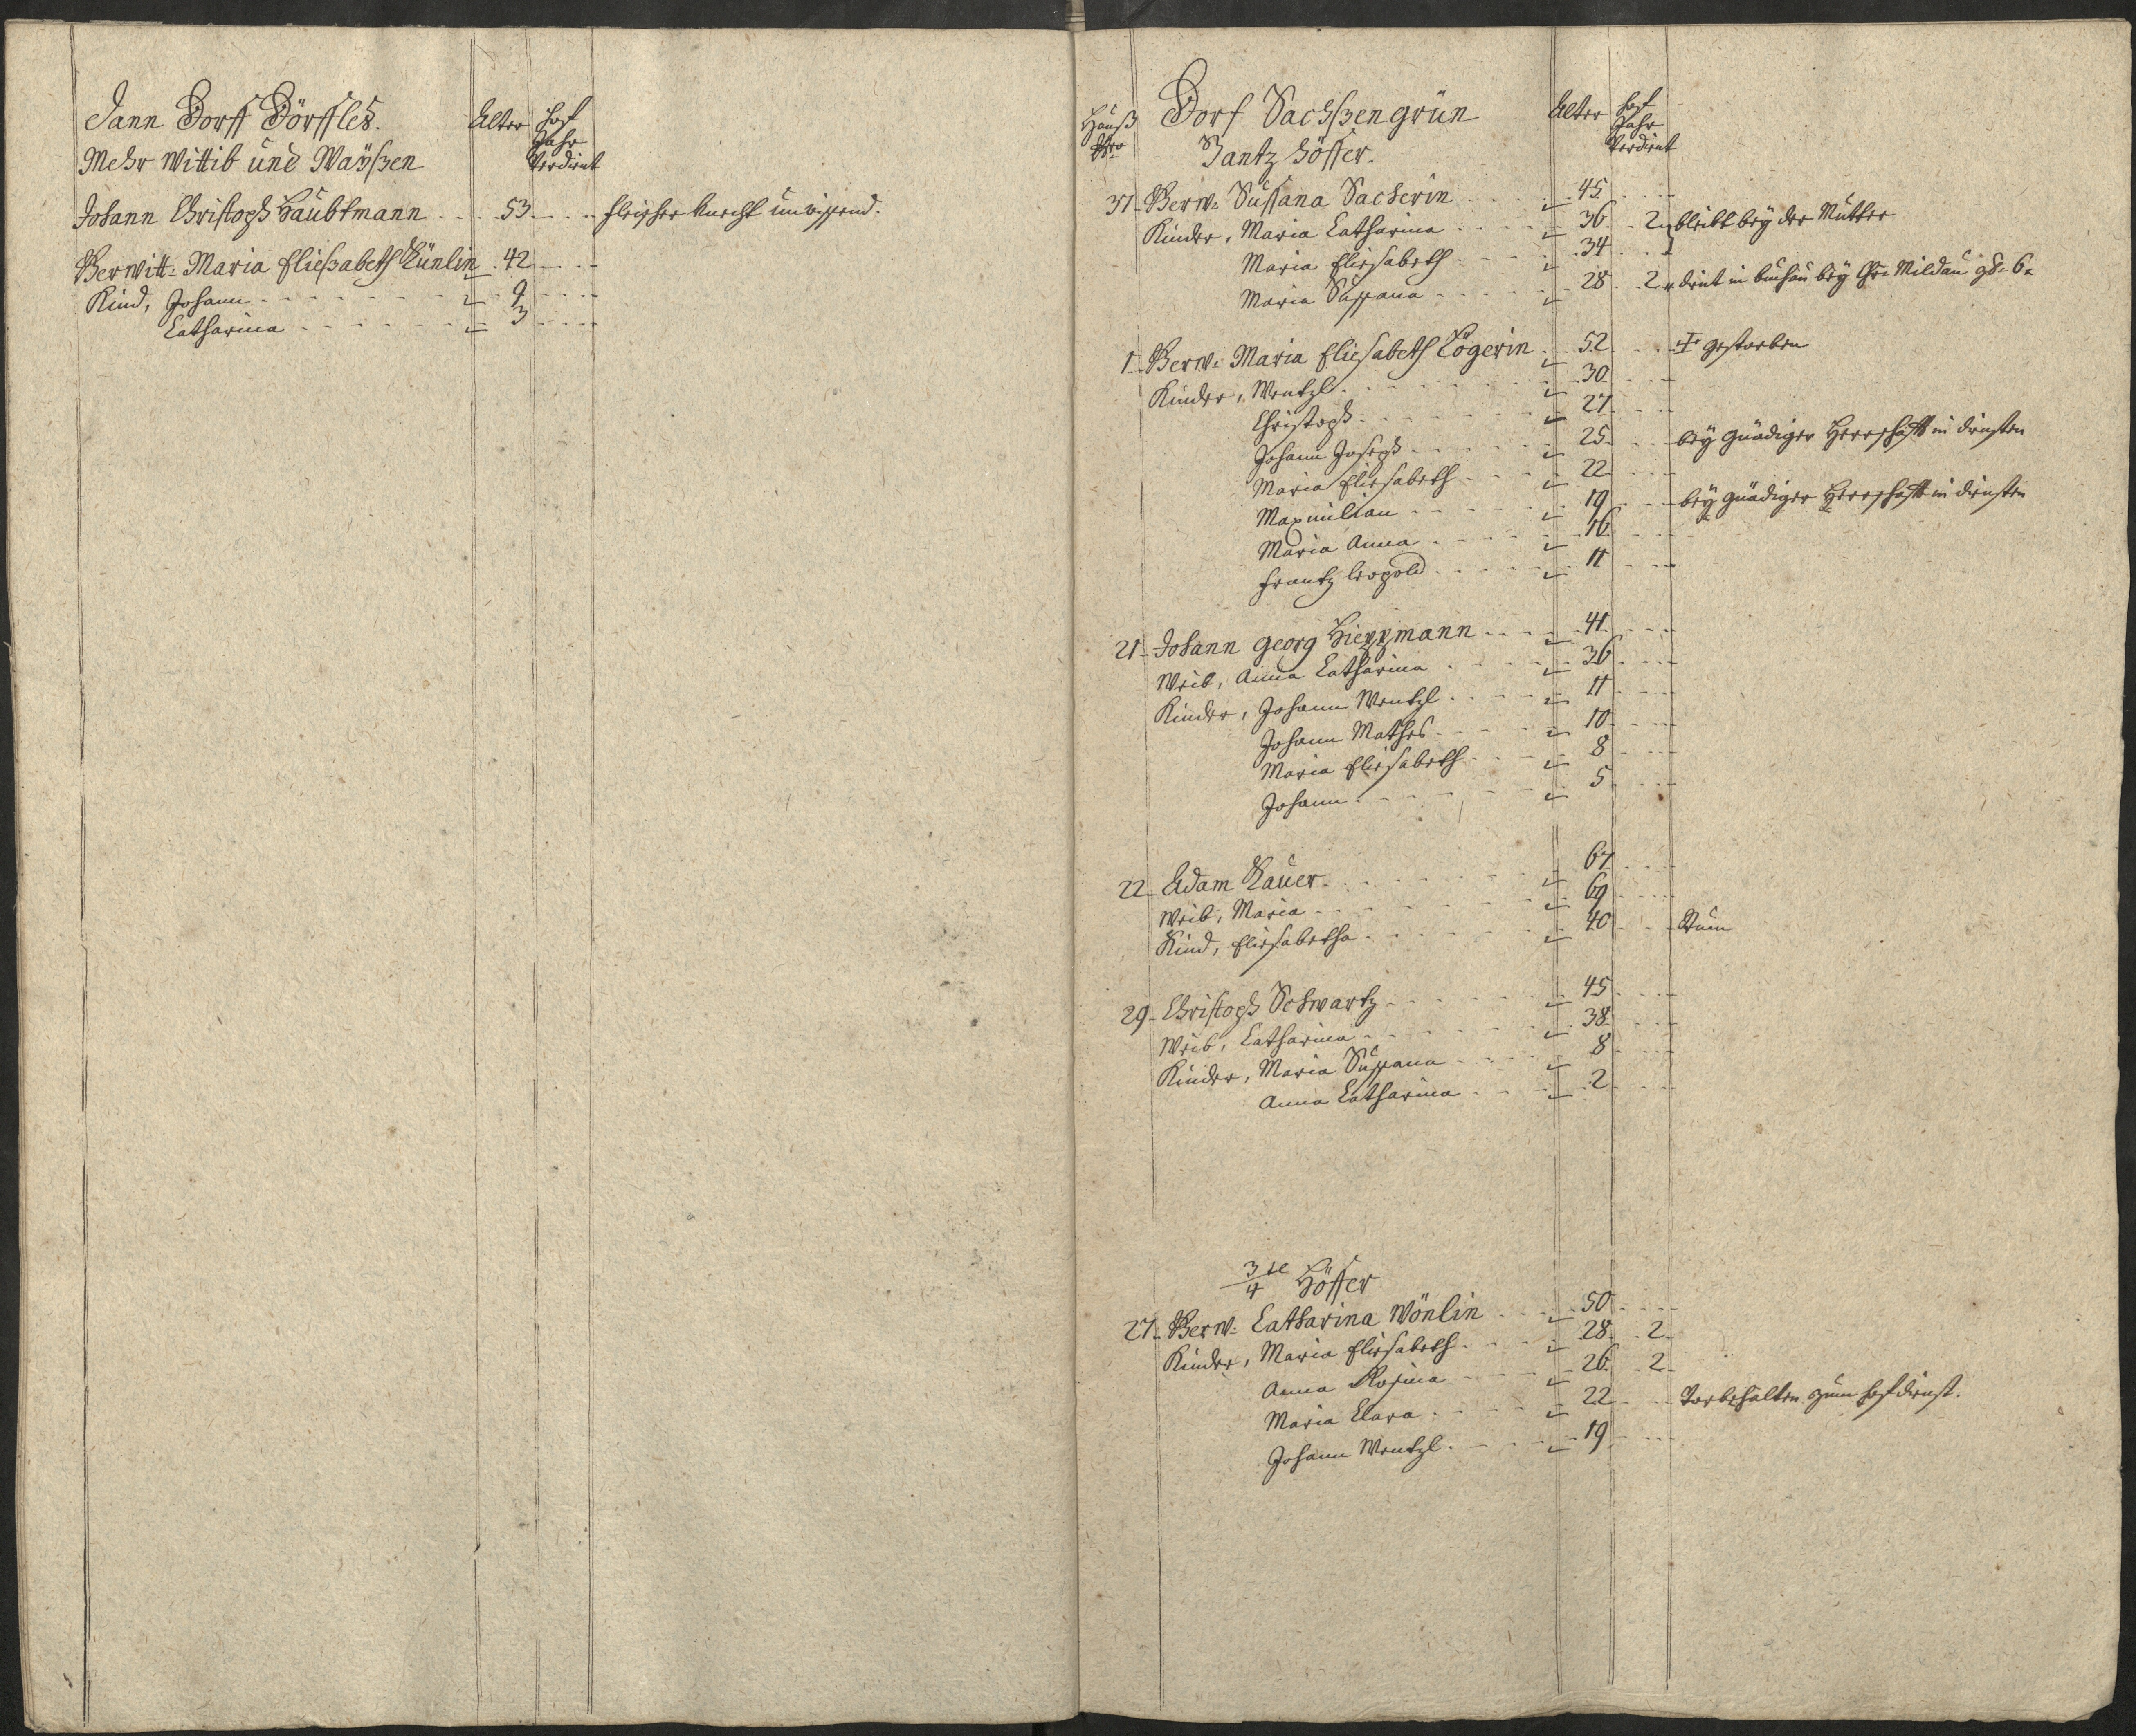 Dorff Dörffles.
Alter
Hof Jahr Verdient
Mehr Wittib und Waÿsßen
Johann Christoph Haubtmann 53 fleischer knecht unwissend.
Verwitt: Maria Eließabeth 42
Kind, Johann 9
Catharina 3
Hauß Nro
Dorf Sachsßengrün
Alter
Hof Jahr Verdient
Gantz Höffer.
37 Verw: Sussana Sacherin 45
Kinder, Maria Catharina 36 2 bleibt beÿ der Mutter
Maria Eliesabeth 34 1
Maria Sussana 28 2 dint in buchau beÿ
1 Verw: Maria Eliesabeth 52 gestorben
Kinder, Wentzl 30
Christoph 27
Johann Joseph 25 beÿ gnädiger Herrschafft in dinsten
Maria Eliesabeth 22
Maxmilian 19 beÿ gnädiger Herrschafft in dinsten
Maria Anna 16
Frantz leopold 11
21 Johann Georg 41
Weib, Anna Catharina 36
Kinder, Johann Wentzl 11
Johann Mathes 10
Maria Eliesabeth 8
Johann 5
22 Adam 67
Weib, Maria 69
Kind, Eliesabetha 40
29 Christoph Schwartz 45
Weib, Catharina 38
Kinder, Maria Sussana 8
Anna Catharina 2
3/4 tl Höffer
27 Verw: Catharina Wönlin 50
Kinder, Maria Eliesabeth 28 2
Anna Rosina 26 2
Maria Clara 22 Vorbehalten zum hofdienst.
Johann Wentzl 19